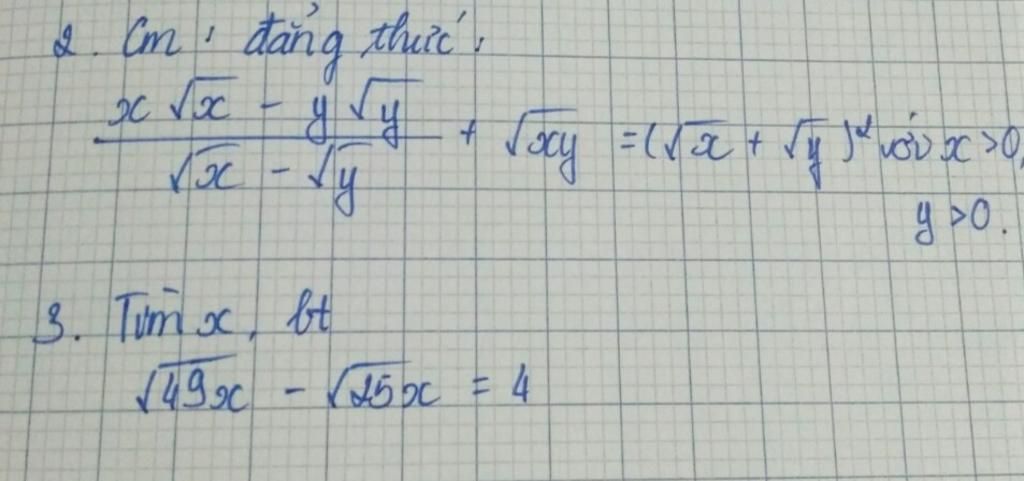 2. Cm : đẳng thức :
x√x - y√y / √x - √y + √xy = (√x + √y)² với x > 0,
y > 0.
3. Tìm x, bt
√49x - √25x = 4